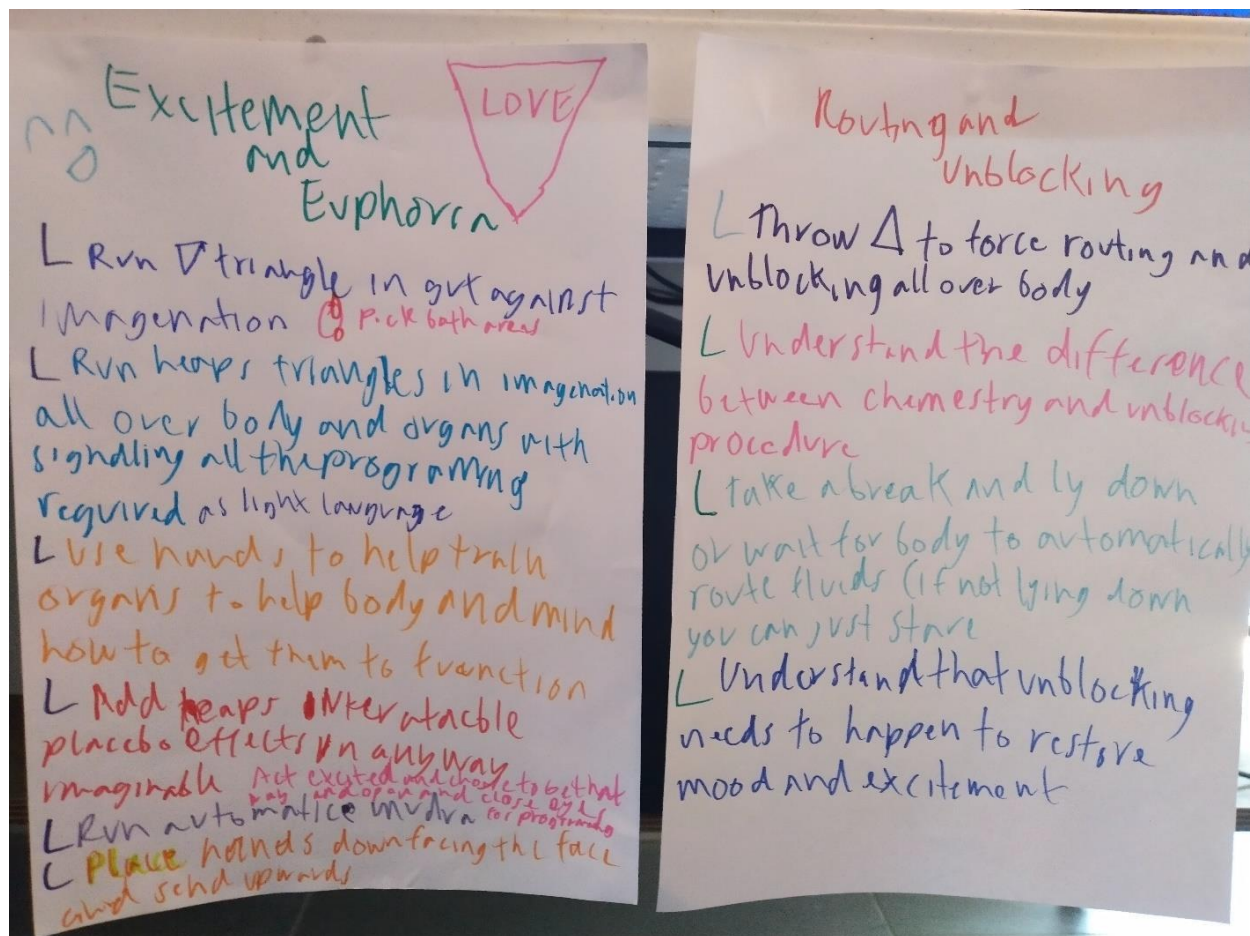 Excitement
and
Euphoria
LOVE
L Run ▽ triangle in gut against
imagenation Pick both areas
L Run heaps triangles in imagenation
all over body and organs with
signalling all the programing
required as light language
L Use hands to help train
organs to help body and mind
how to get them to function
L Add heaps interatacble
placebo effects in anyway
imaginable Act excyted and chose to be that
way and open and close eyes
for programing
L Run automatice mudra
L Place hands down facing the face
and send upwards
Routing and
unblocking
L Throw △ to force routing and
unblocking all over body
L Understand the difference
between chemestry and
procedure
L take a break and ly down
or wait for body to automatically
route fluids (if not lying down
you can just stare
L Understand that unblocking
needs to happen to restore
mood and excitement